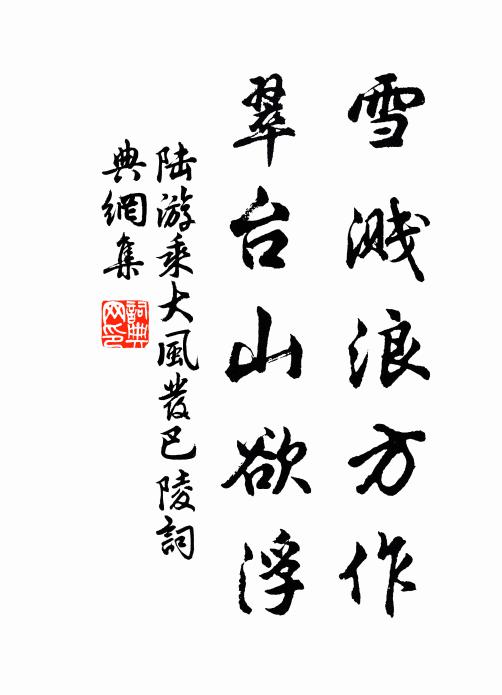 雪溅浪方作
翠台山欲浮
陆游乘大風發巴陵詞
典網集
詞典網印